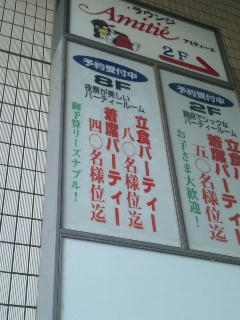 ラウンジ
Amitié
アミティーエ
2F
予約受付中
8F
夜景が美しい
パーティールーム
立食パーティー
八〇名様位迄
着席パーティー
四〇名様位迄
御予算リーズナブル!
予約受付中
2F
パーティールーム
立食パーティー
五〇名様
着席パーティ
お子さま大歓迎!